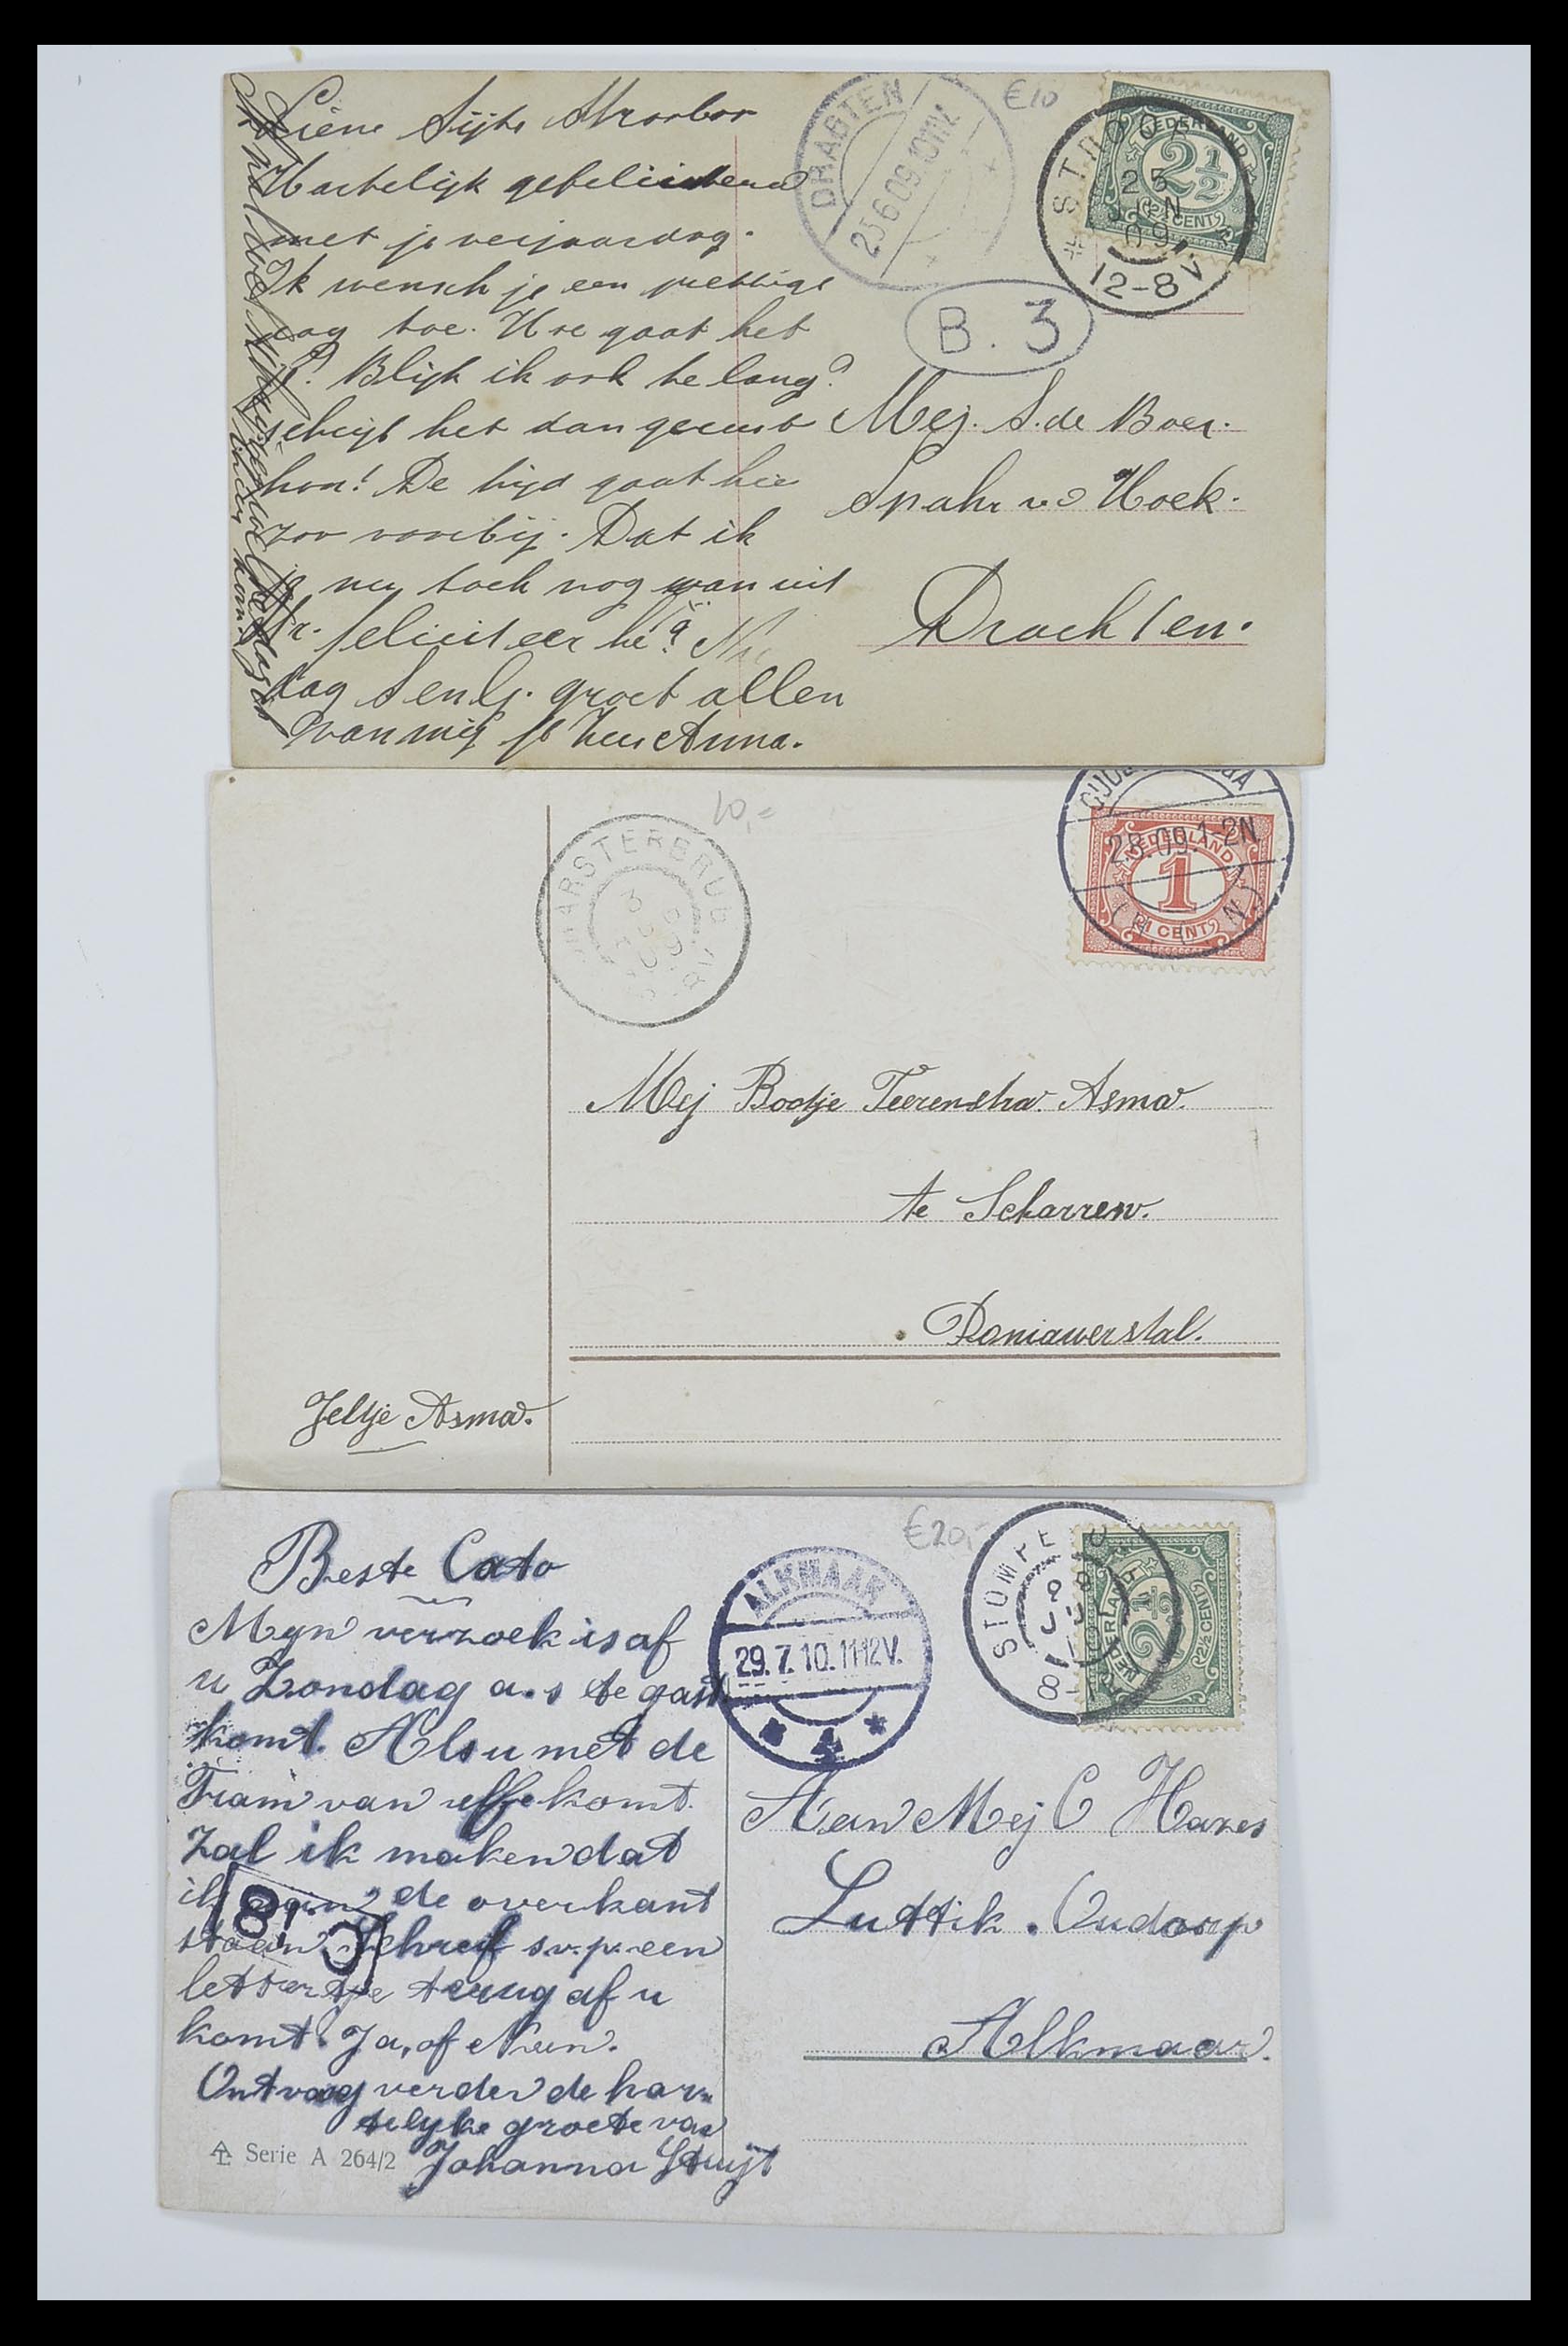 Hartelijk gefeliciteerd
met je verjaardag.
Ik wensch je een prettige
dag toe. Hoe gaat het
Blijf ik ook te lang?
schrijf het dan gerust
hoor! De tijd gaat hier
zoo voorbij. Dat ik
je nu toch nog van uit
feliciteer hè? Nu
dag S en G. groet allen
van mij je Anna.
DRAGTEN
25 6 09 10-11V
€10
NEDERLAND
2½
(2½ CENT)
25
JUN
09
12-8V
B. 3
Mej. S. de Boer.
Spahr v d Hoek.
Drachten.
10,=
SCHARSTERBRUG
NEDERLAND
1
(1 CENT)
28.09.1-2N
Mej Bodje Teerenstra Asma.
te Scharren.
Doniawerstal.
Jeltje Asma.
Beste Cato
Myn verzoek is af
u Zondag a.s te gast
komt. Als u met de
Tram van komt.
Zal ik maken dat
ik aan de overkant
staan. Schreif s.v.p. een
lettertje terug af u
komt. Ja, of Neen.
Ontvang verder de har-
telyke groete van
Johanna Stuijt
Serie A 264/2
€20,-
ALKMAAR
29.7.10.11-12V.
4
STOMPE
NEDERLAND
2½
(2½ CENT)
Aan Mej C Hares
Luttik. Oudorp
Alkmaar.